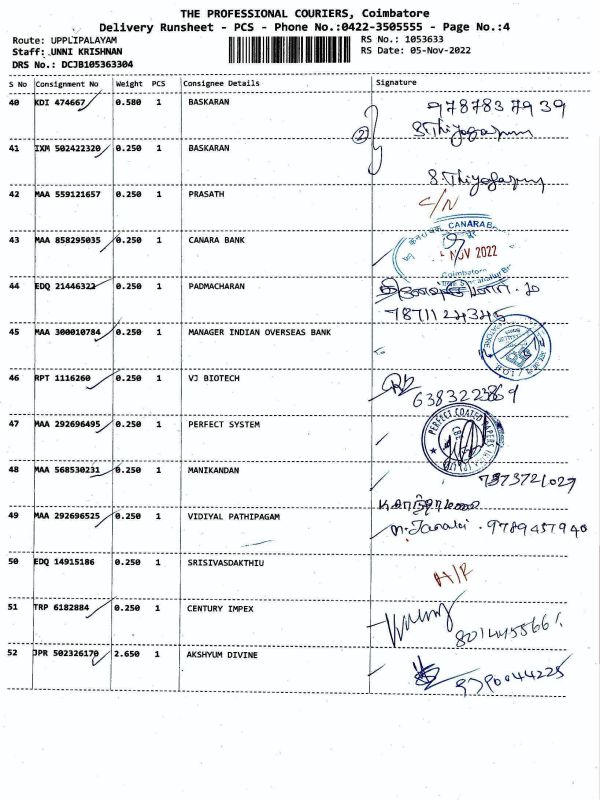 THE PROFESSIONAL COURIERS, Coimbatore
Delivery Runsheet - PCS - Phone No.:0422-3505555 - Page No.:4
Route: UPPLIPALAYAM
Staff: UNNI KRISHNAN
DRS No.: DCJB105363304
RS No.: 1053633
RS Date: 05-Nov-2022
S No Consignment No Weight PCS Consignee Details Signature
40 KDI 474667 0.580 1 BASKARAN 9787837939
S.Thiyagarajan
2
41 IXM 502422320 0.250 1 BASKARAN
S.Thiyagarajan
42 MAA 559121657 0.250 1 PRASATH C/N
43 MAA 858295035 0.250 1 CANARA BANK
CANARA
NOV 2022
Coimbatore
44 EDQ 21446322 0.250 1 PADMACHARAN
45 MAA 300010784 0.250 1 MANAGER INDIAN OVERSEAS BANK
46 RPT 1116260 0.250 1 VJ BIOTECH
6383223869
47 MAA 292696495 0.250 1 PERFECT SYSTEM
PERFECT COATED PAPERS
48 MAA 568530231 0.250 1 MANIKANDAN 7373721029
49 MAA 292696525 0.250 1 VIDIYAL PATHIPAGAM
M.Janaki . 9789457940
50 EDQ 14915186 0.250 1 SRISIVASDAKTHIU
51 TRP 6182884 0.250 1 CENTURY IMPEX
52 JPR 502326170 2.650 1 AKSHYUM DIVINE
9790044225